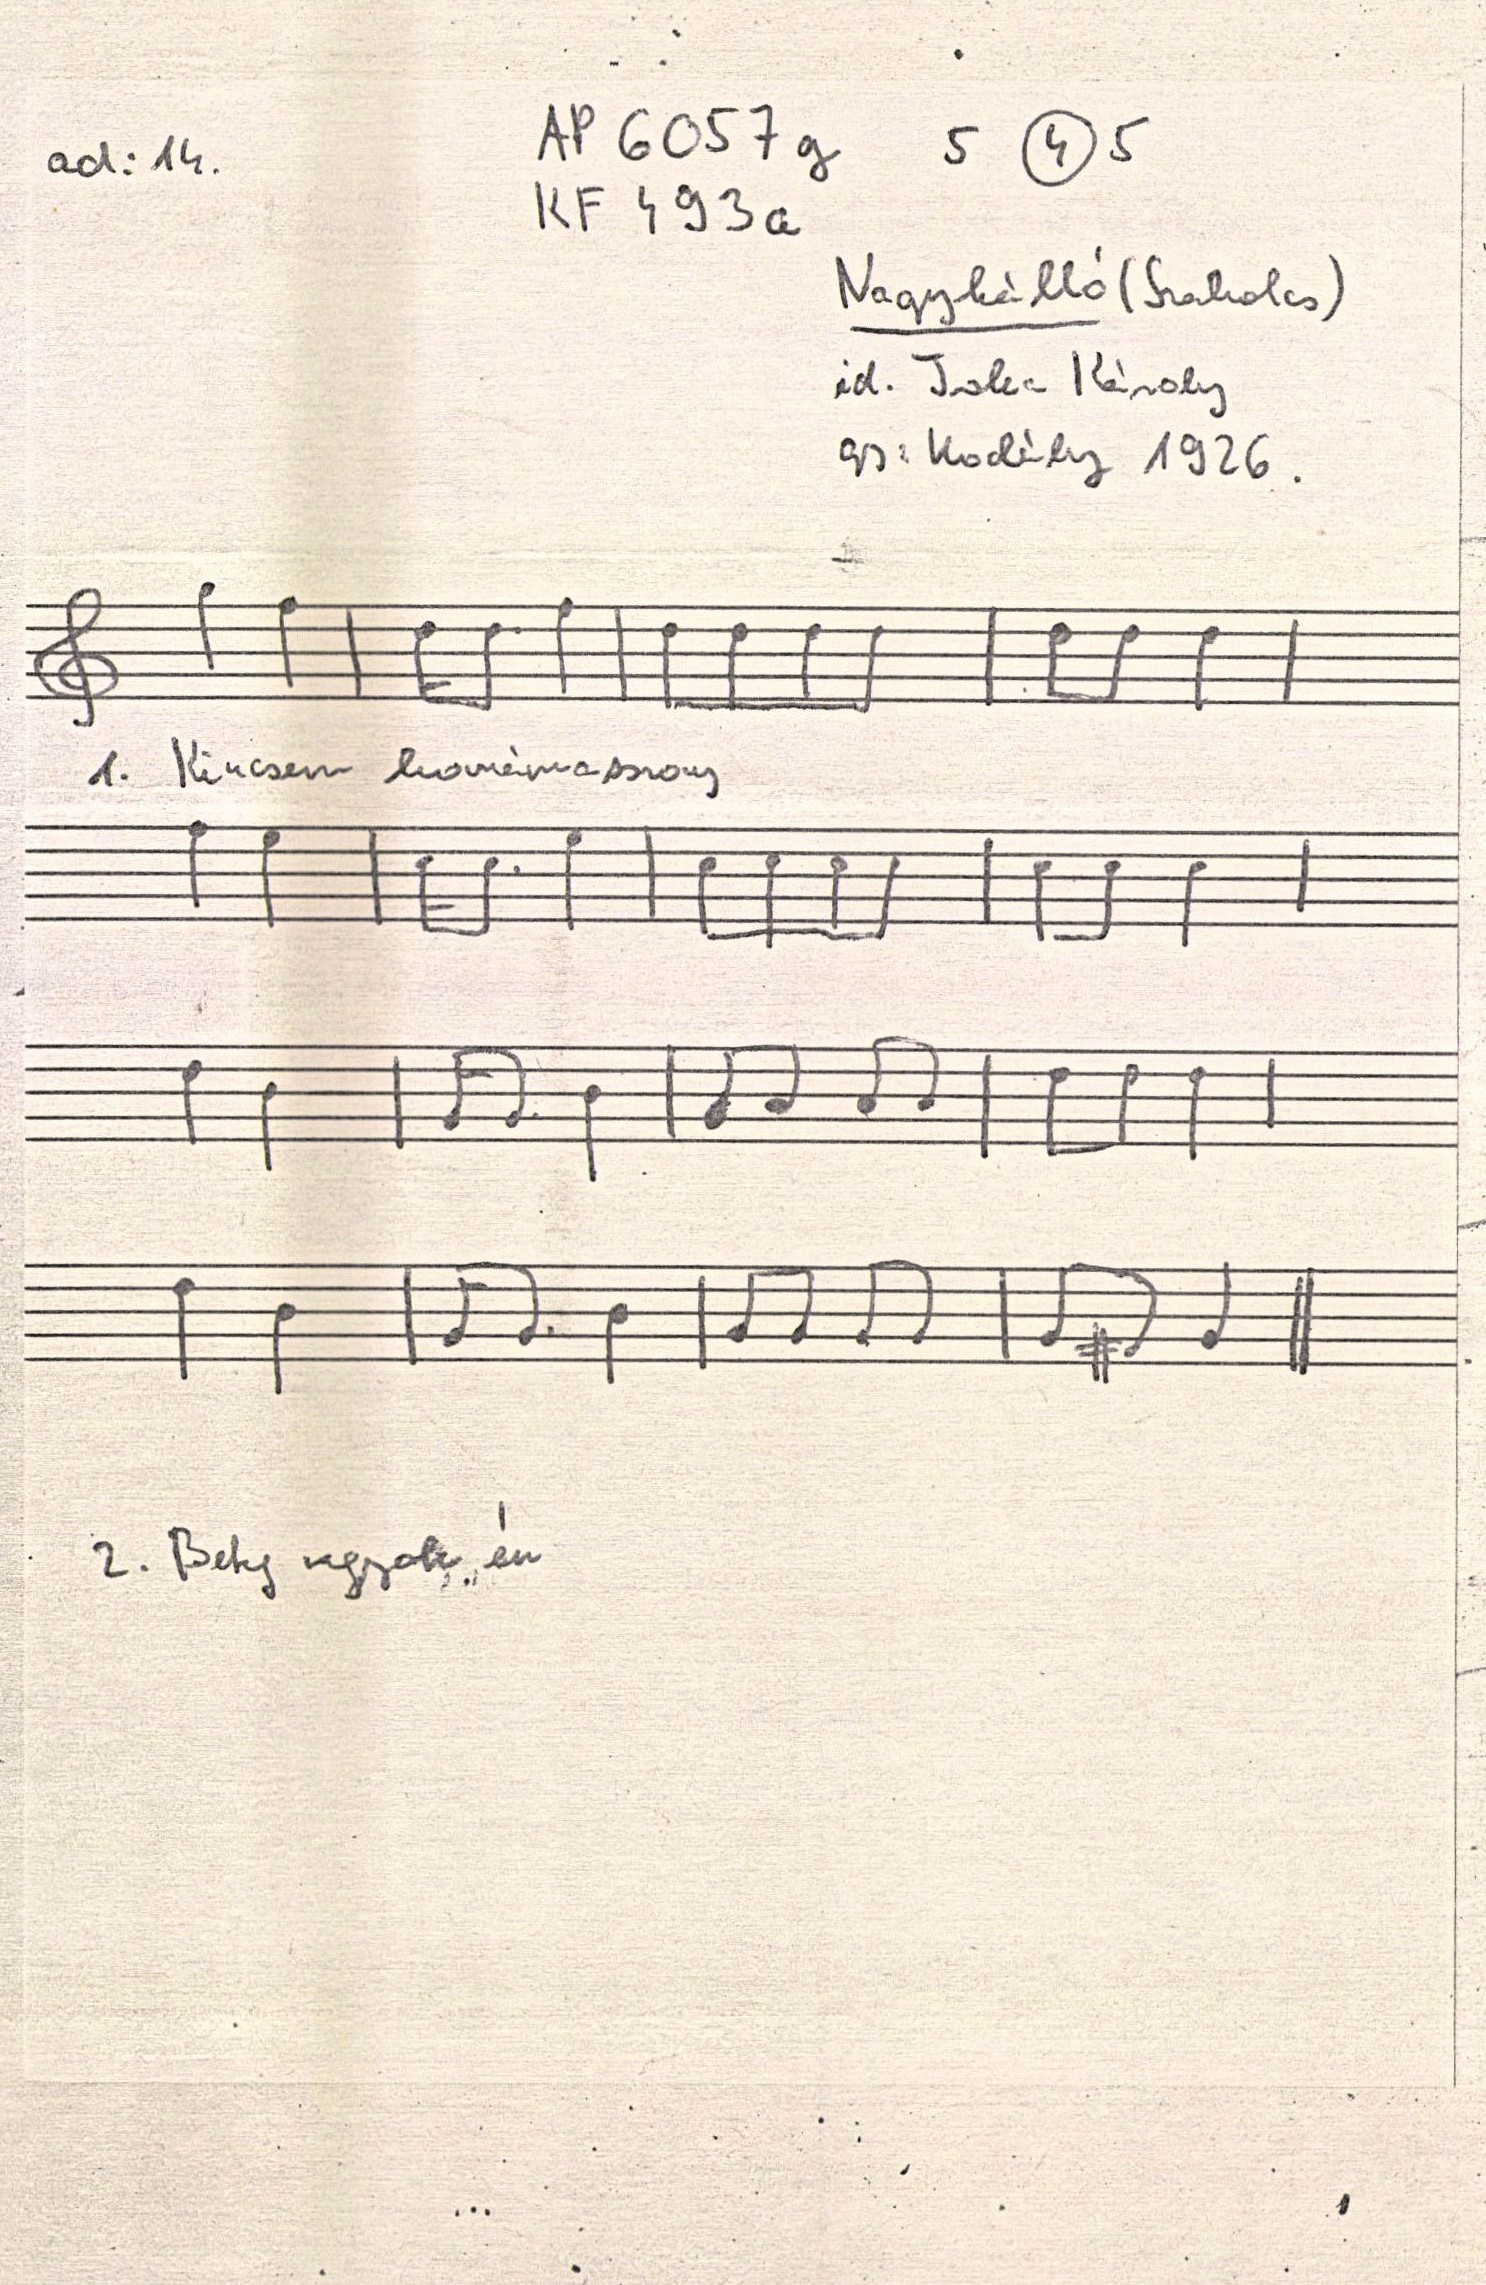 ad: 14.
AP 6057 g 5 4 5
KF 493a
Nagykálló (Szabolcs)
id. Jóka Károly
gy: Kodály 1926.
1. Kincsem komámasszony
2. Beteg vagyok én